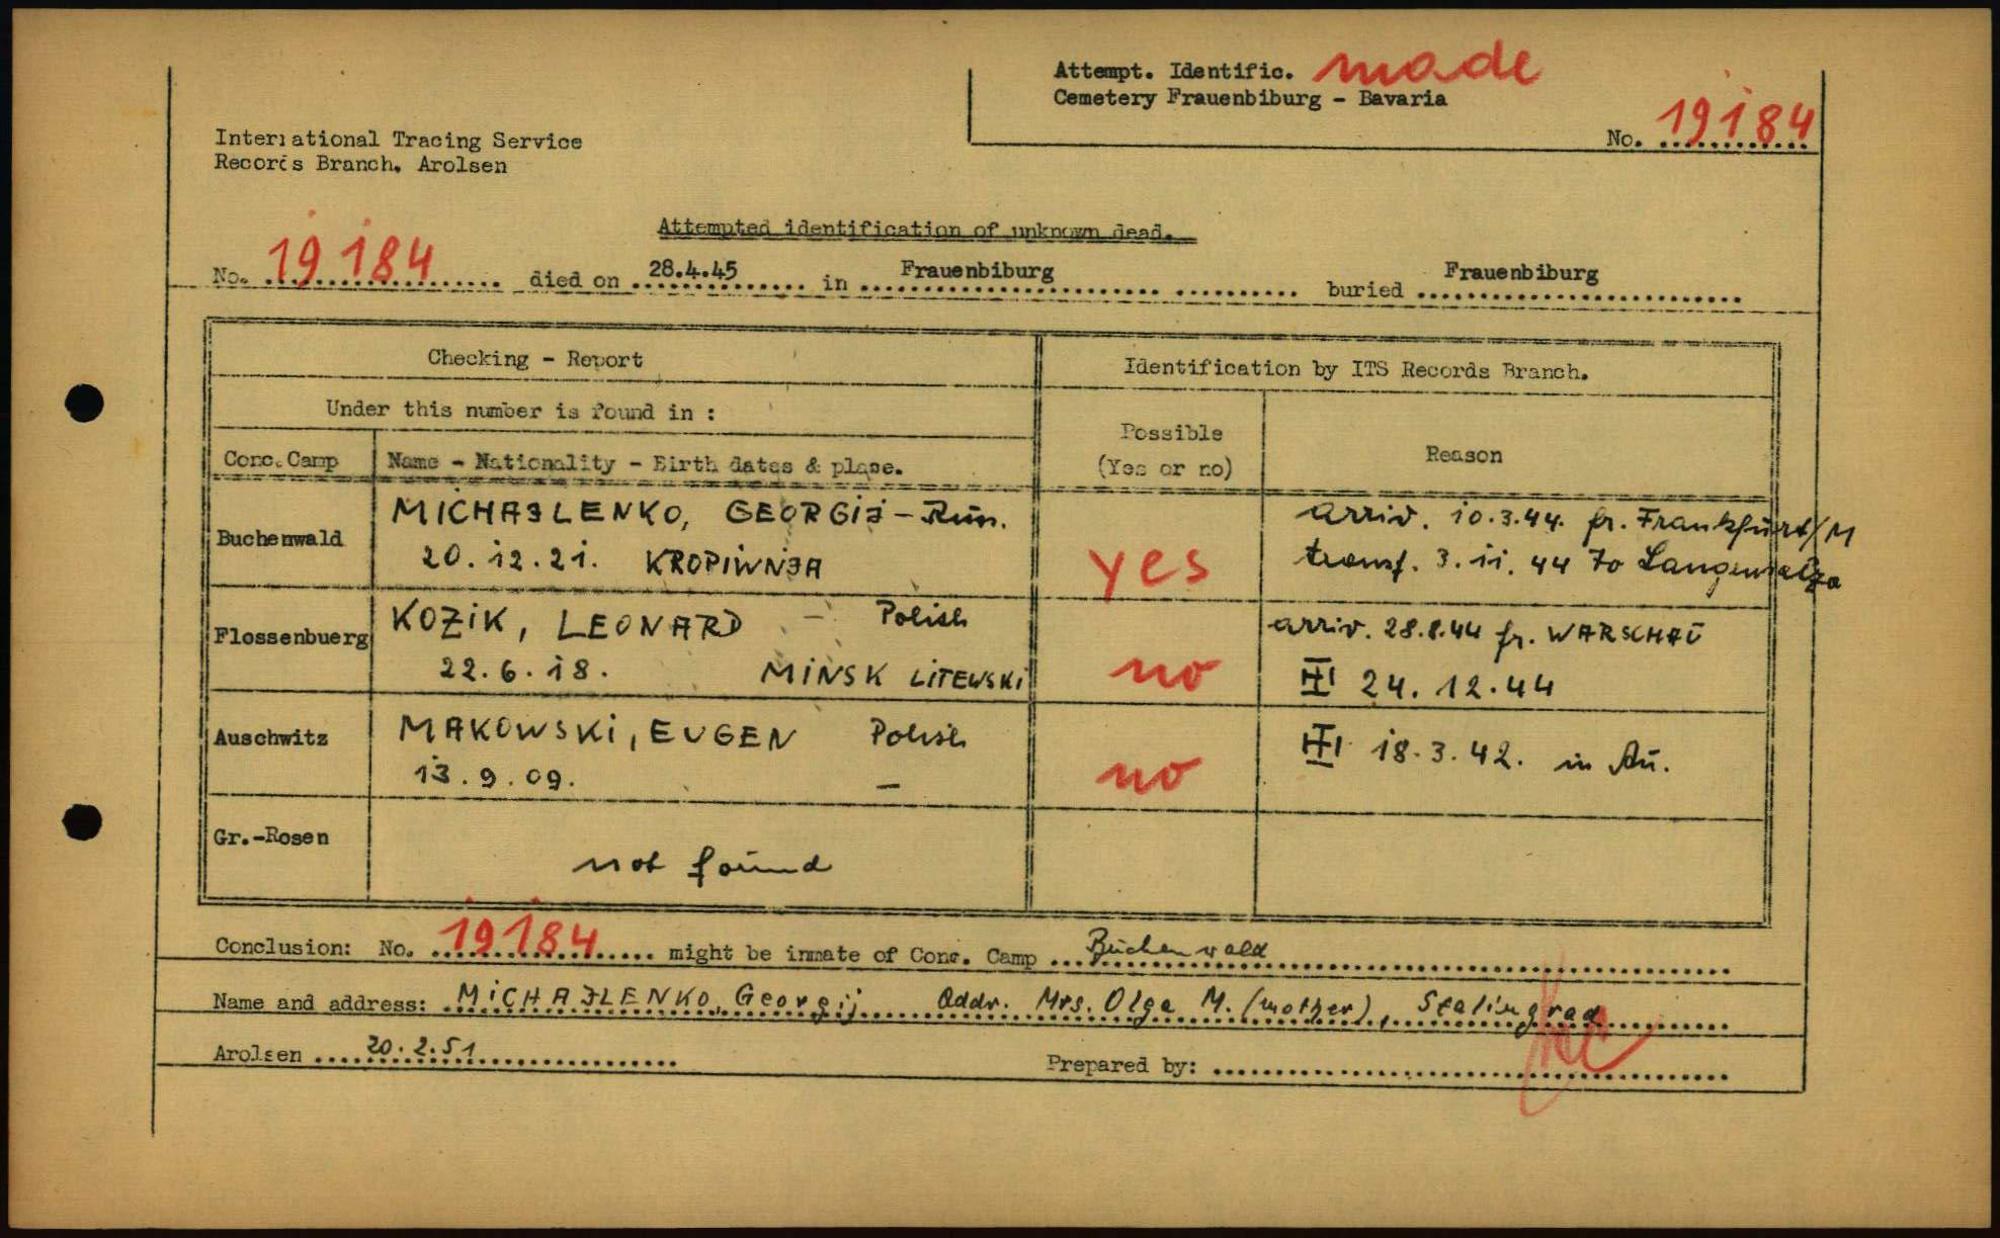 Attempt. Identific. made
Cemetery Frauenbiburg - Bavaria
No. 19184
International Tracing Service
Records Branch. Arolsen
Attempted identification of unknown dead.
No. 19184 died on 28.4.45 in Frauenbiburg buried Frauenbiburg
Checking - Report
Identification by ITS Records Branch.
Under this number is found in :
Conc. Camp
Name - Nationality - Birth dates & place.
Possible
(Yes or no)
Reason
Buchenwald
MICHAJLENKO, GEORGIJ - Russ.
20.12.21. KROPIWNJA
yes
arriv. 10.3.44. fr. Frankfurt/M
transf. 3.11.44 to Langensalza
Flossenbuerg
KOZIK, LEONARD - Polish
22.6.18. MINSK LITEWSKI
no
arriv. 28.8.44 fr. WARSCHAU
24.12.44
Auschwitz
MAKOWSKI, EUGEN Polish
13.9.09. -
no
18.3.42. in Au.
Gr.-Rosen
not found
Conclusion: No. 19184 might be inmate of Conc. Camp Buchenwald
Name and address: MICHAJLENKO, Georgij Addr. Mrs. Olga M. (mother), Stalingrad
Arolsen 20.2.51
Prepared by: